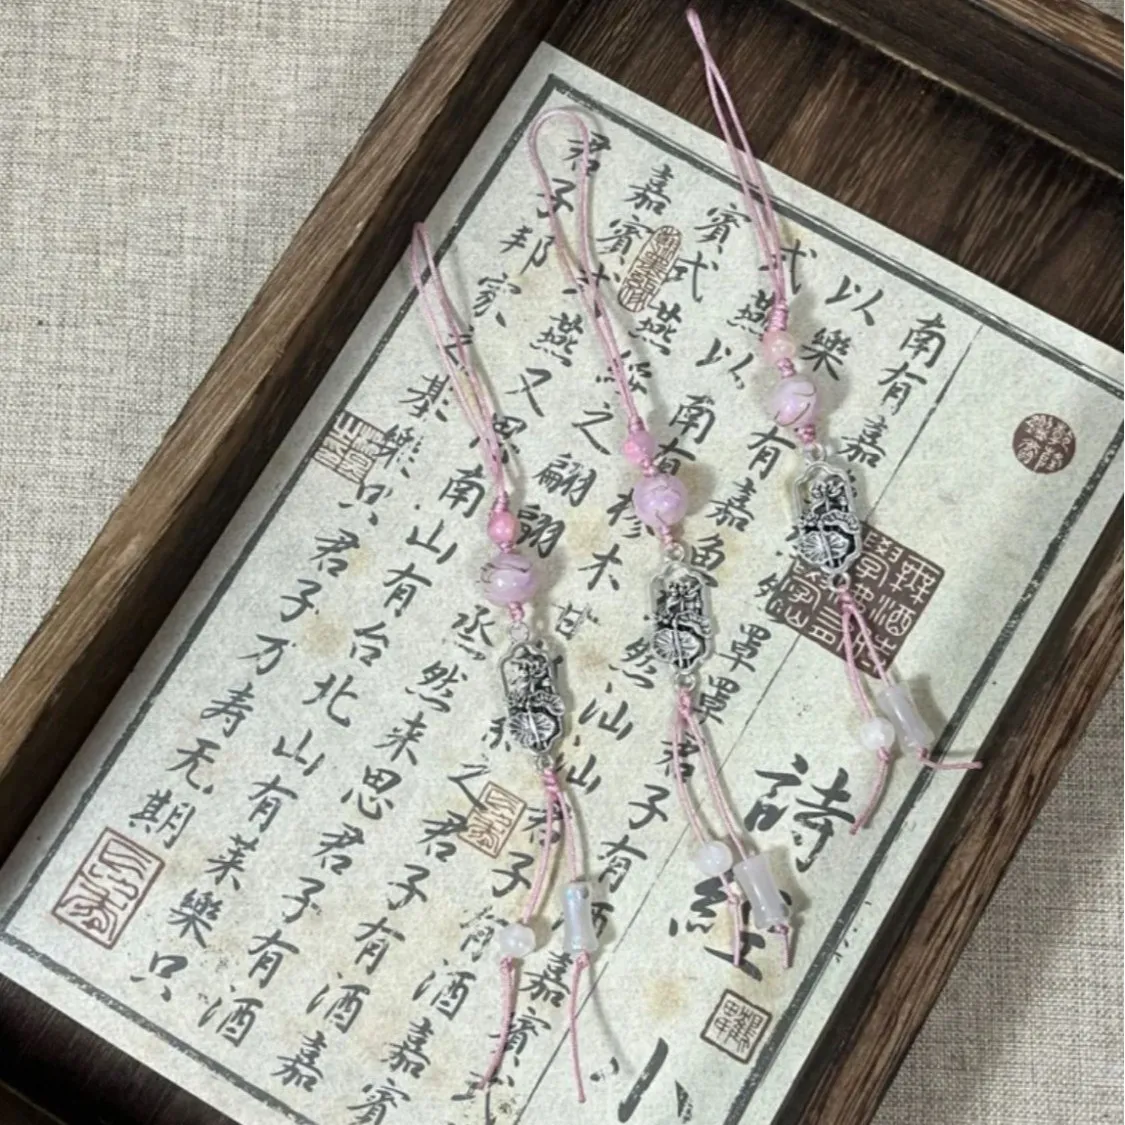 詩經
南有嘉然罩罩君子有酒嘉賓式
以樂有嘉魚然汕汕君子有酒嘉賓
式燕以南有樛木甘之君子有酒嘉
賓式燕綏之翩翩烝然来思君子有酒
嘉賓式燕又思南山有台北山有莱樂只
君子邦家之基樂只君子万寿无期